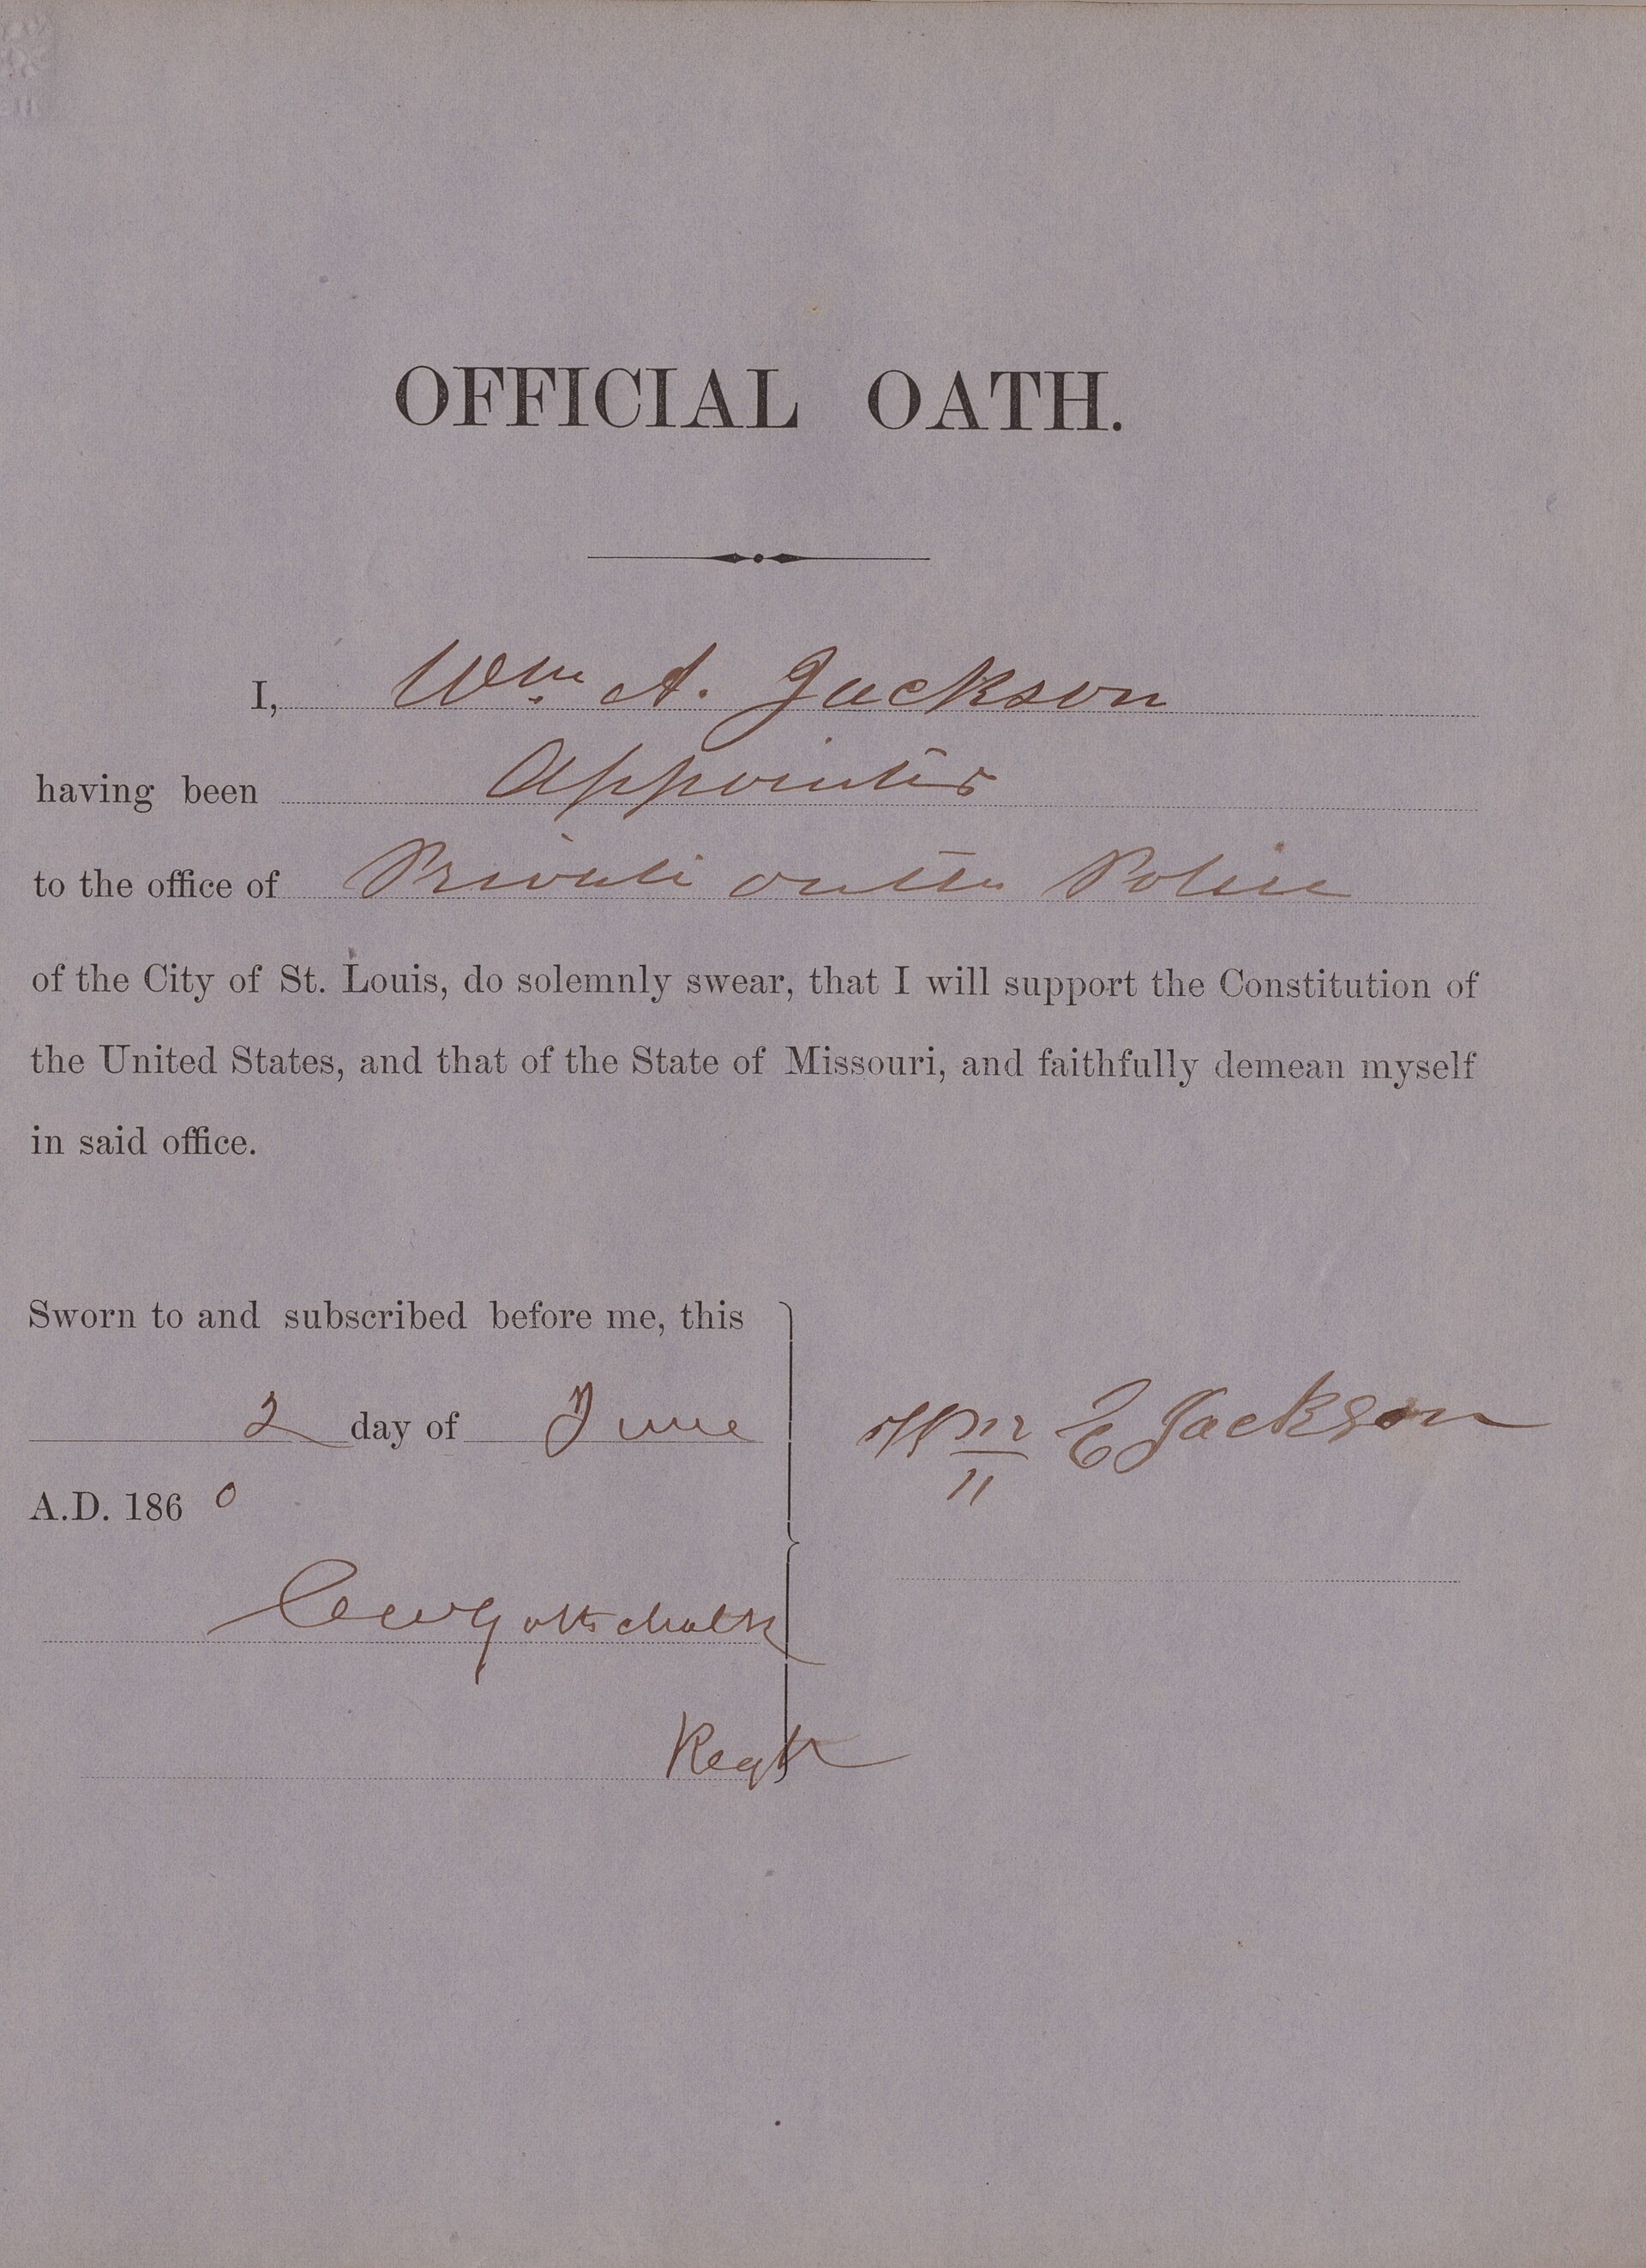 OFFICIAL OATH.
I, Wm. A. Jackson
having been Appointed
to the office of Private on the Police
of the City of St. Louis, do solemnly swear, that I will support the Constitution of
the United States, and that of the State of Missouri, and faithfully demean myself
in said office.
Sworn to and subscribed before me, this
2 day of June
A.D. 1860
Wm E Jackson
CW Gottschalk
Regtr